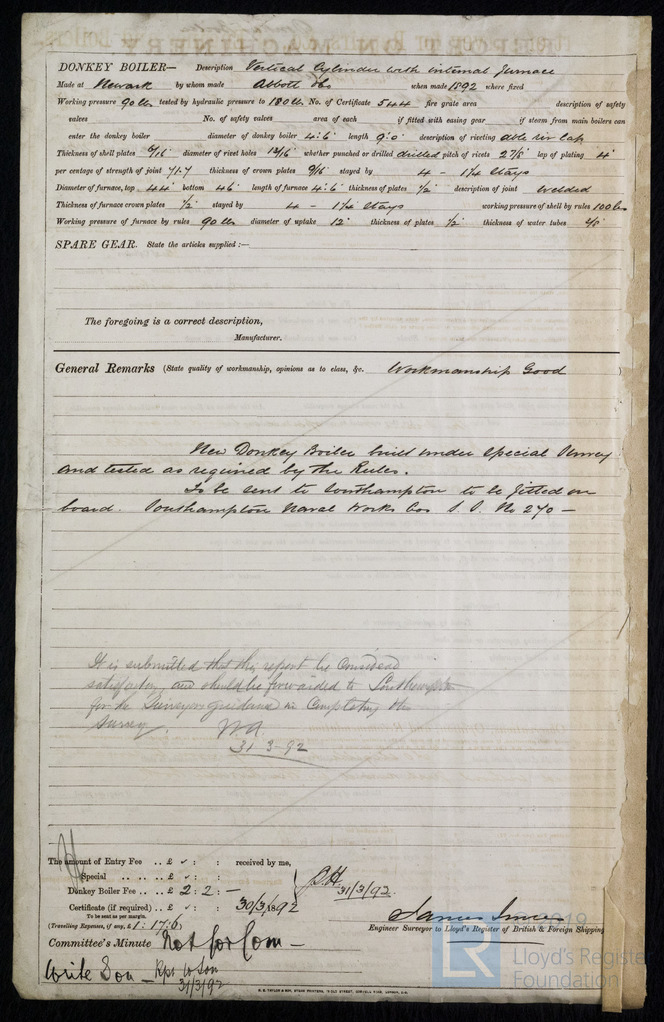 DONKEY BOILER— Description Vertical Cylinder with internal furnace
Made at Newark by whom made Abbott & Co when made 1892 where fixed
Working pressure 90 lbs tested by hydraulic pressure to 180 lbs No. of Certificate 544 fire grate area description of safety
valves No. of safety valves area of each if fitted with easing gear if steam from main boilers can
enter the donkey boiler diameter of donkey boiler 4:6 length 9:0 description of riveting dble riv lap
Thickness of shell plates 6/16 diameter of rivet holes 13/16 whether punched or drilled drilled pitch of rivets 2 7/8 lap of plating 4"
per centage of strength of joint 71.7 thickness of crown plates 9/16 stayed by 4 - 1¼ Stays
Diameter of furnace, top 44" bottom 46" length of furnace 4:6 thickness of plates 1/2 description of joint welded
Thickness of furnace crown plates 1/2 stayed by 4 - 1¼ Stays working pressure of shell by rules 100 lbs
Working pressure of furnace by rules 90 lbs diameter of uptake 12" thickness of plates 1/2 thickness of water tubes 3/8
SPARE GEAR. State the articles supplied :—
The foregoing is a correct description,
Manufacturer.
General Remarks (State quality of workmanship, opinions as to class, &c. Workmanship Good
New Donkey Boiler built under Special Survey
and tested as required by the Rules.
To be sent to Southampton to be fitted on
board. Southampton Naval Works Cos S.S. No 270 —
It is submitted that this report be considered
satisfactory, and should be forwarded to Southampton
for the Surveyors guidance in Completing the
Survey.
W.A.
31-3-92
The amount of Entry Fee .. £ : : received by me,
Special .. .. .. £ : :
Donkey Boiler Fee .. .. £ 2 : 2 : —
31/3/92.
Certificate (if required) .. £ : : 30/3/1892
To be sent as per margin.
(Travelling Expenses, if any, £ 1 : 17 : 6.)
James
Engineer Surveyor to Lloyd's Register of British & Foreign Shipping
Committee's Minute Not for Com —
Write Son — Rpt to Son
31/3/92
Lloyd's Register
Foundation